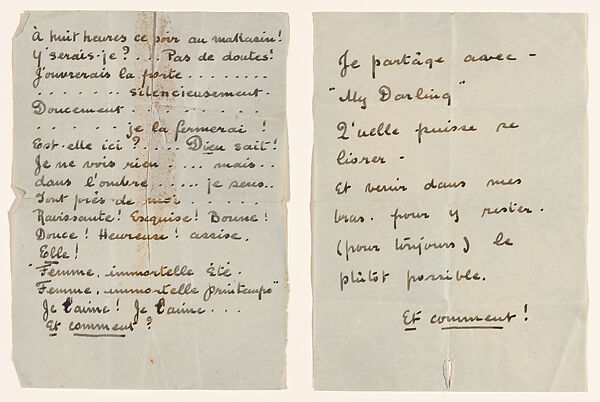 À huit heures ce soir au makasin!
Y serais-je? ... Pas de doutes!
J'ouvrerais la porte ........
....... silencieusement.
Doucement ..........
...... je la fermerai !
Est-elle ici ? .... Dieu sait!
Je ne vois rien .... mais..
dans l'ombre ..... je sens..
Tout près de moi .......
Ravissante! Exquise! Bonne!
Douce! Heureuse! assise.
Elle!
"Femme, immortelle été.
Femme, immortelle printemps"
Je t'aime! Je t'aime ...
Et comment ?
Je partâge avec -
"My Darling"
Qu'elle puisse se
livrer -
Et venir dans mes
bras. pour y rester.
(pour toujours) le
plûtot possible.
Et comment !